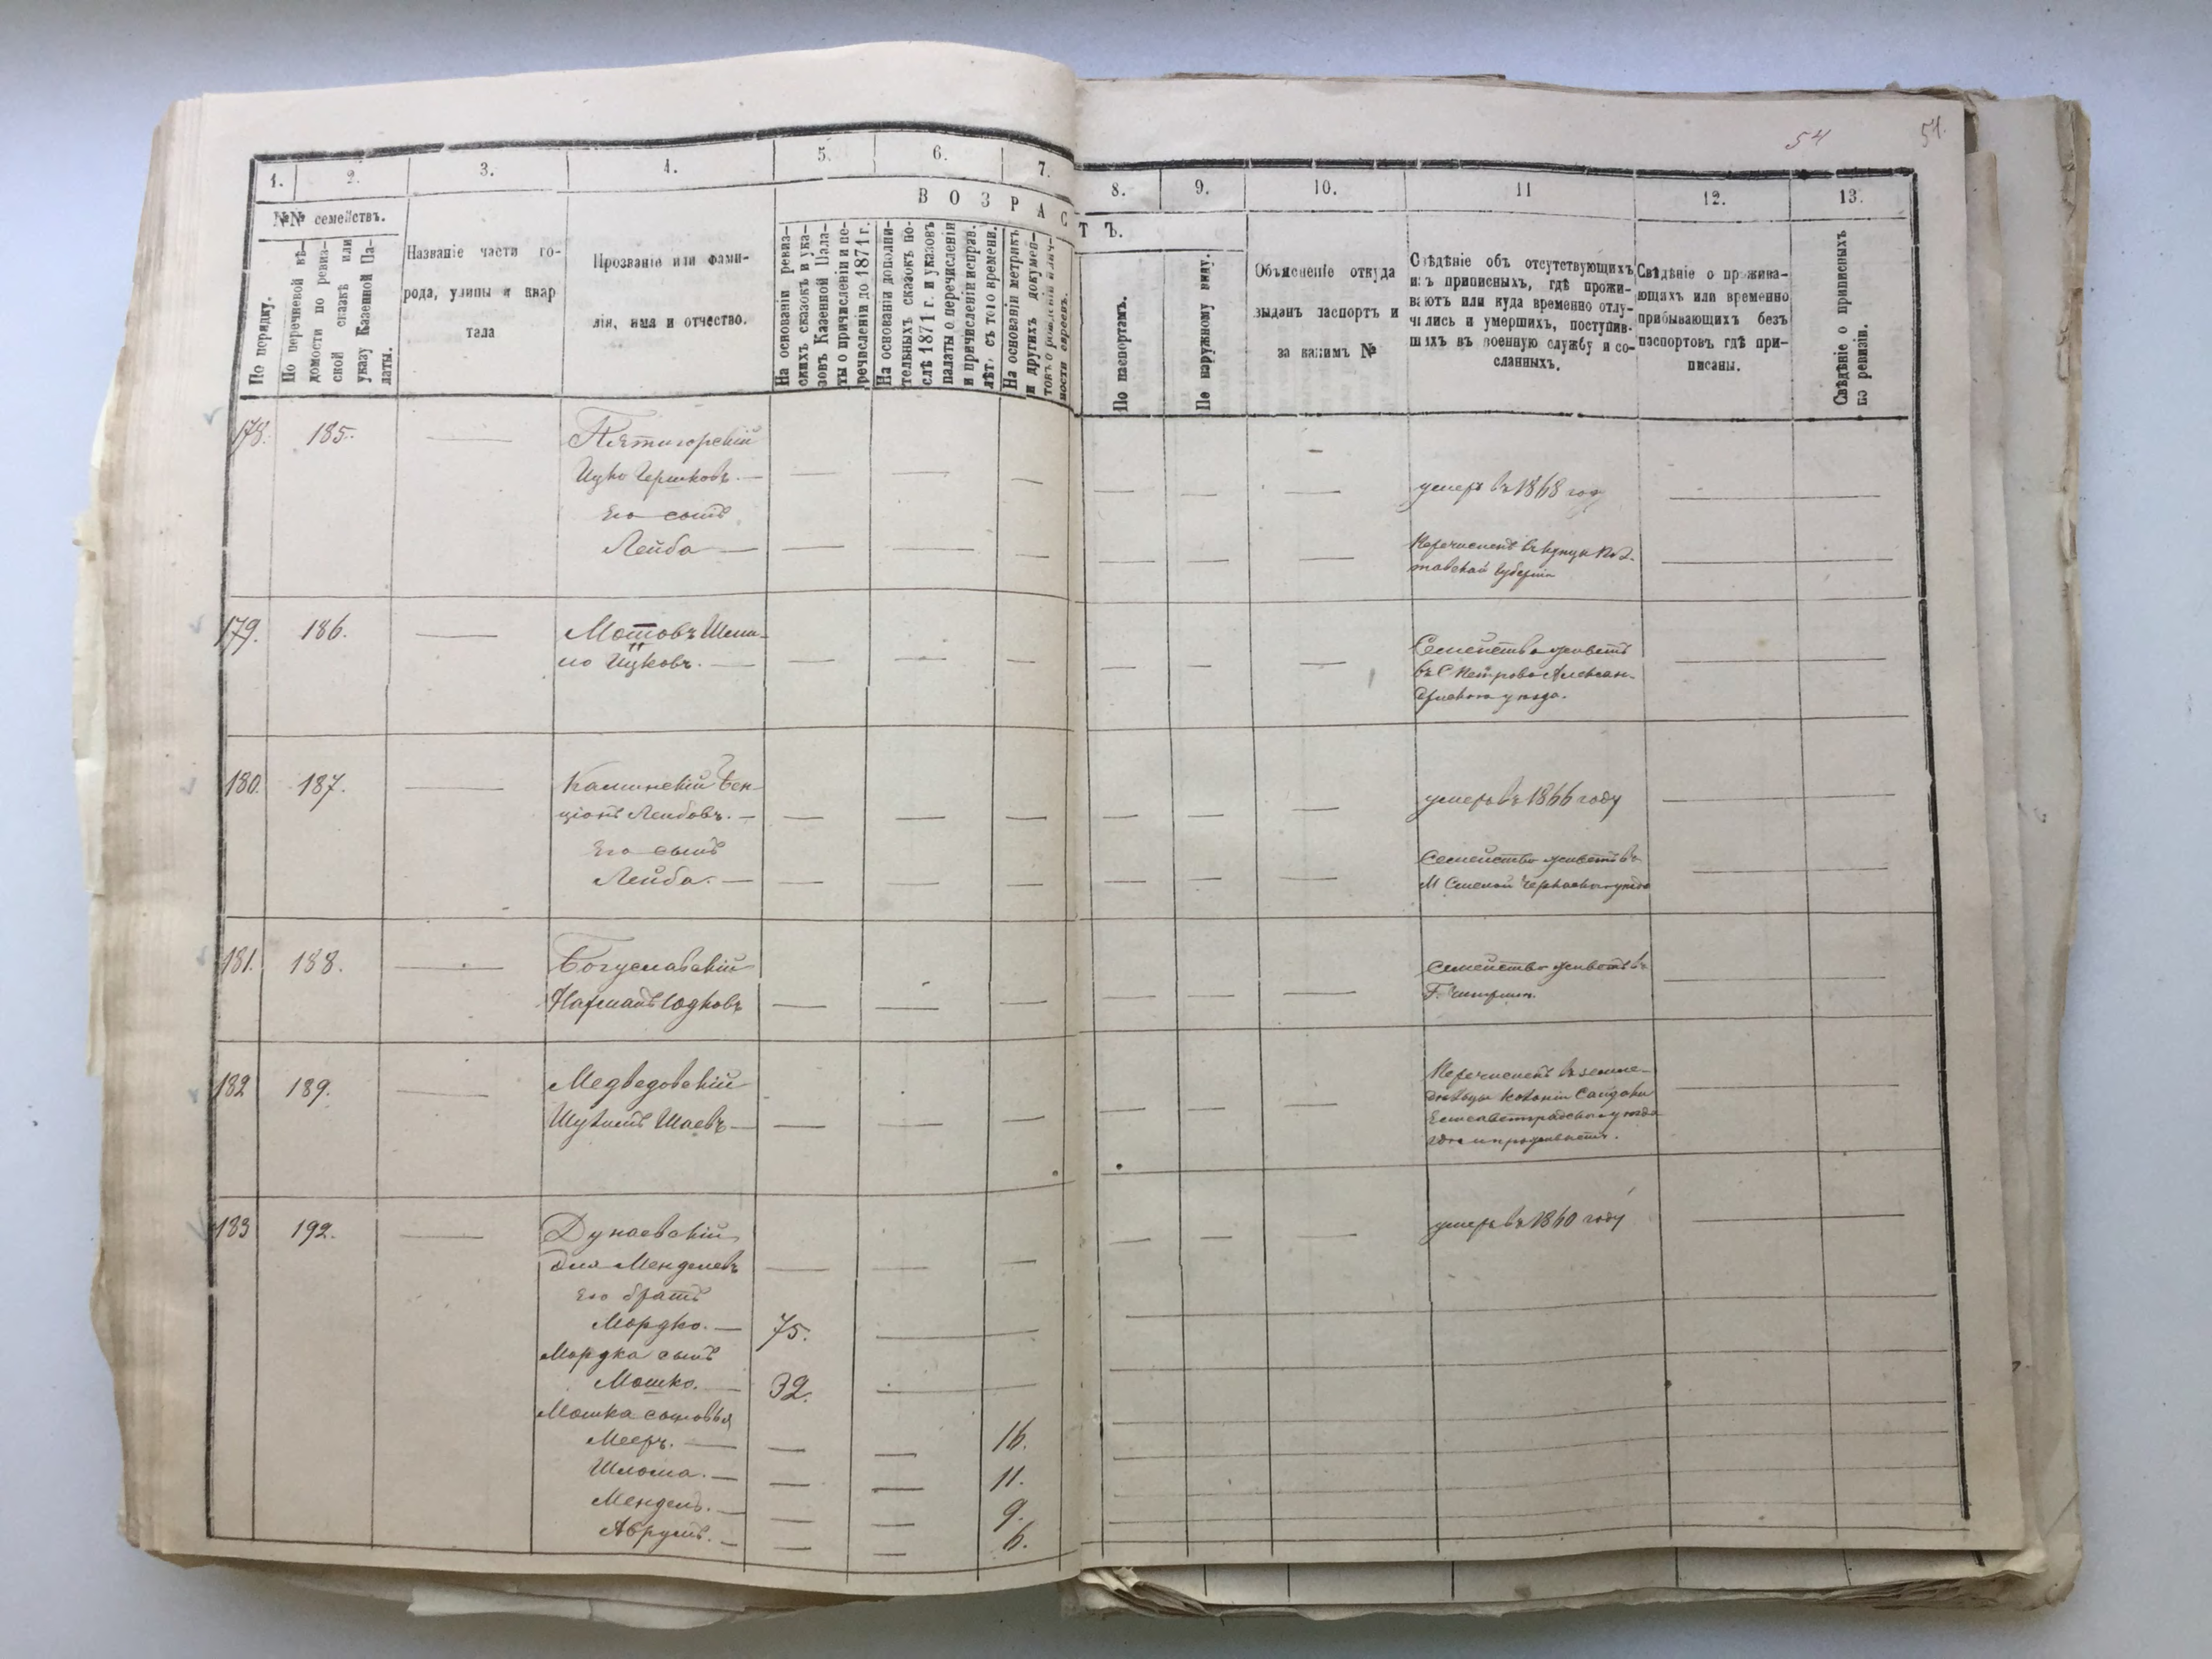 54
51.
1.
2.
3.
4.
5.
6.
7.
8.
9.
10.
11
12.
13.
№№ семействъ.
По порядку.
По перечневой вѣ-
домости по ревиз-
ской сказкѣ или
указу Казенной Па-
латы.
Названіе части го-
рода, улицы и квар
тала
Прозваніе или фами-
лія, имя и отчество.
ВОЗРАСТЪ.
На основаніи ревиз-
скихъ сказокъ и ука-
зовъ Казенной Пала-
ты о причисленіи и пе-
речисленіи до 1871 г.
На основаніи дополни-
тельныхъ сказокъ по-
слѣ 1871 г. и указовъ
палаты о перечисленіи
и причисленіи исправ.
лѣт. съ того времени.
На основаніи метрикъ
и другихъ докумен-
товъ о рожденіи
ности евреевъ.
По паспортамъ.
По наружному виду.
Объясненіе откуда
выданъ паспортъ и
за какимъ №
Свѣдѣніе объ отсутствующихъ
изъ приписныхъ, гдѣ прожи-
ваютъ или куда временно отлу-
чились и умершихъ, поступив-
шихъ въ военную службу и со-
сланныхъ.
Свѣдѣніе о прожива-
ющихъ или временно
прибывающихъ безъ
паспортовъ гдѣ при-
писаны.
Свѣдѣніе о приписныхъ
по ревизіи.
178. 185. Пятигорскій
Ицко Гершковъ. умеръ въ 1868 году
Его сынъ
Лейба Перечисленъ въ купцы Пол-
тавской Губерніи
179. 186. Мотовъ Шми-
ло Ицковъ. Семейство живетъ
въ С Петрово Алексан-
дрійскаго уезда.
180. 187. Каминскій Бен
ціонъ Лейбовъ. умеръ въ 1866 году
Его сынъ
Лейба. Семейство живетъ въ
М Смелой Черкаскаго уезда
181. 188. Богуславскій
Нахманъ Юдковъ Семейство живетъ въ
Г. Чигирин.
182 189. Медведовскій
Шулимъ Шаевъ Перечисленъ въ земле-
дѣльцы Колоніи Сайдаки
Елисаветградскаго уезда
где и проживаетъ.
183 192. Дунаевскій
Менделевъ умеръ въ 1860 году
Его братъ
Мордко. 75.
Мордка сынъ
Мошко. 32.
Мошка сыновья
Мееръ. 16.
Шлома. 11.
Мендель. 9.
Аврумъ. 6.